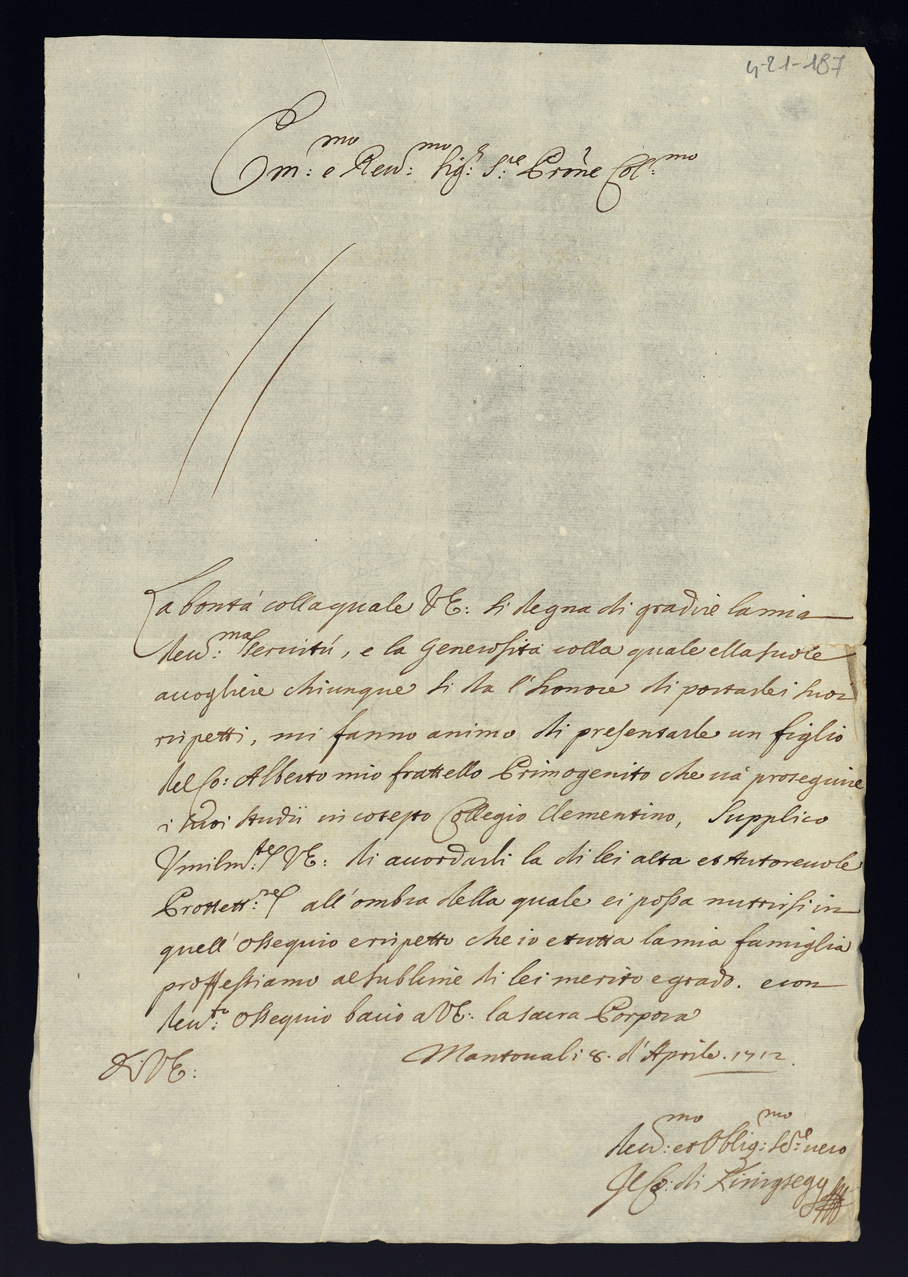 4-21-187
Em:mo e Rev:mo Sig:r S:re Prone Col:mo
La bontà colla quale VE: si degna di gradire la mia
dev:ma servitù, e la generosità colla quale ella suole
accogliere chiunque si da l'honore di portarle i suoi
rispetti, mi fanno animo di presentarle un figlio
del Co: Alberto mio frattello Primogenito che và proseguire
i suoi studii in cotesto Collegio Clementino, Supplico
Vmilm:te VE: di accordarli la di lei alta et Autorevole
Prottett:ne all'ombra della quale ei possa nuttrirsi in
quell'ossequio e rispetto che io e tutta la mia famiglia
proffessiamo al sublime di lei merito e grado. e con
dev:to ossequio bacio a VE: la sacra Porpora
Di VE:
Mantoua li 8. d'Aprile. 1712.
Dev:mo et Oblig:mo Se:re vero
Il Co: di Kinigsegg